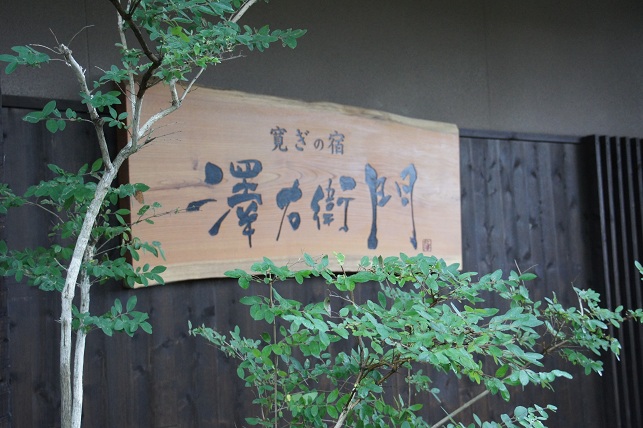 寛ぎの宿
澤右衛門